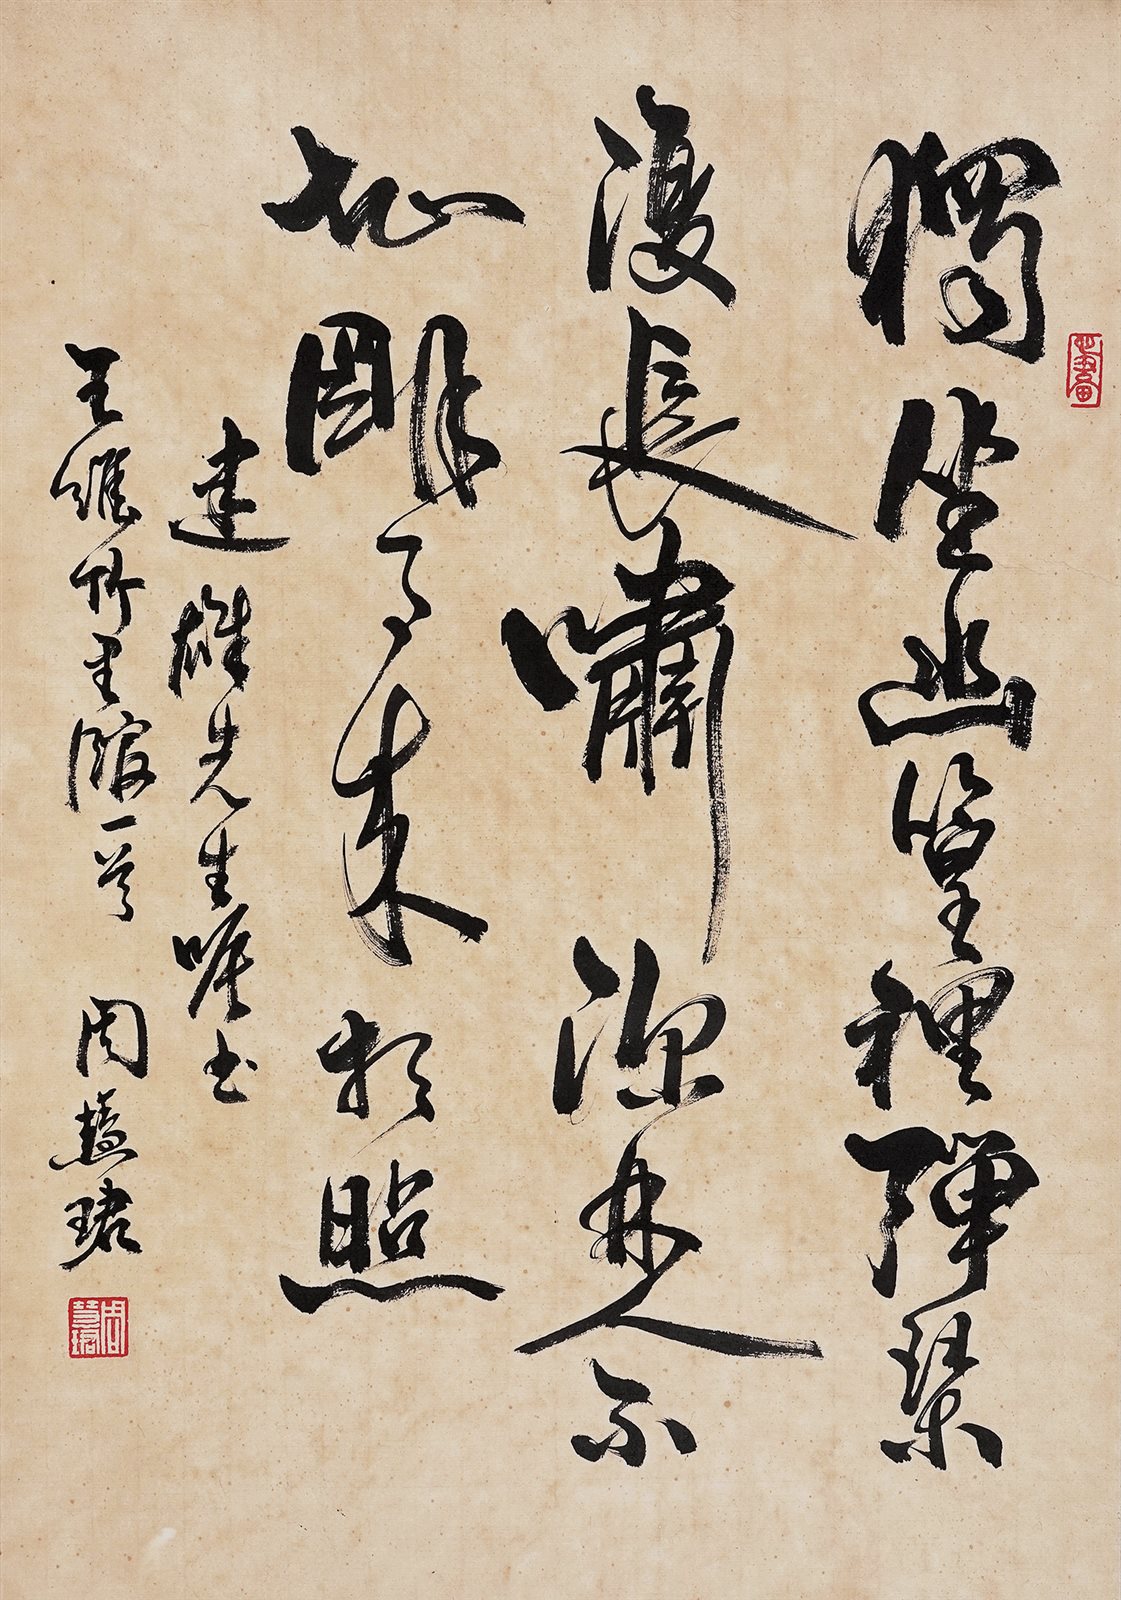 獨坐幽篁裡彈琴
復長嘯深林人不
知朙月来相照
建雄先生囑書
王維竹里館一首 周慧珺
周慧珺